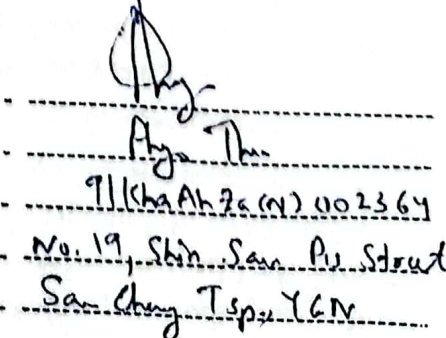 Phyo Thu
9/KhaAhZa(N)002364
No. 19, Shin Saw Pu Street
San Chaung Tsp, YGN